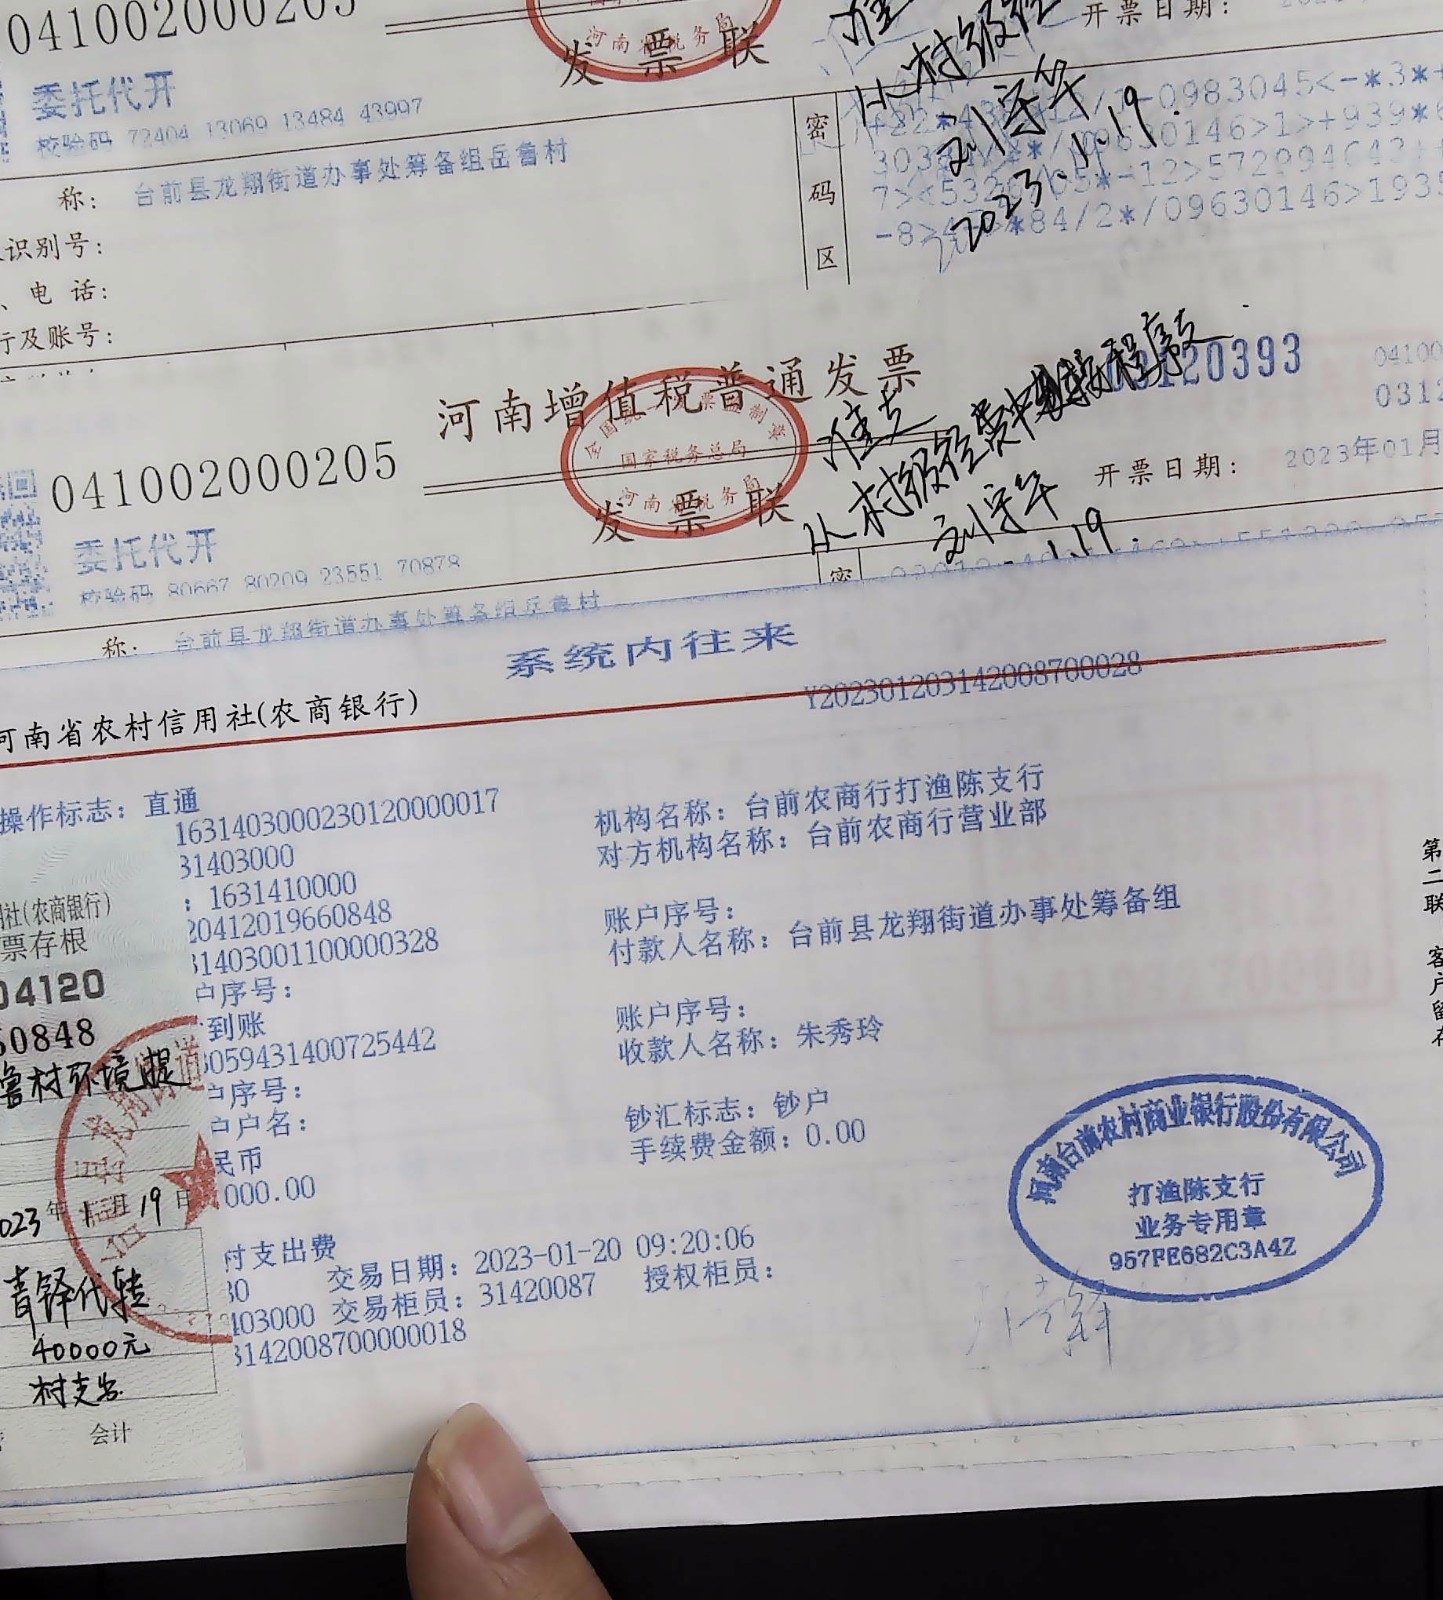 041002000205
发票联
开票日期:
委托代开
校验码 72404 13069 13484 43997
准
从村级经
刘守华
2023.1.19.
称: 台前县龙翔街道办事处筹备组岳鲁村
识别号:
、电话:
行及账号:
密码区
河南增值税普通发票
全国统一发票监制章
国家税务总局
河南省税务局
041002000205
发票联
20393
04100
0312
开票日期: 2023年01月
准支
从村级经费中按程序支
刘守华
1.19.
委托代开
校验码 80667 80209 23551 70878
密
称: 台前县龙翔街道办事处筹备组岳鲁村
系统内往来
河南省农村信用社(农商银行)
Y202301203142008700028
操作标志: 直通
1631403000230120000017
机构名称: 台前农商行打渔陈支行
31403000
对方机构名称: 台前农商行营业部
: 1631410000
20412019660848
账户序号:
31403001100000328
付款人名称: 台前县龙翔街道办事处筹备组
户序号:
到账
账户序号:
3059431400725442
收款人名称: 朱秀玲
户序号:
户户名:
钞汇标志: 钞户
民币
手续费金额: 0.00
000.00
付支出费
交易日期: 2023-01-20 09:20:06
403000 交易柜员: 31420087 授权柜员:
3142008700000018
社(农商银行)
票存根
04120
60848
鲁村环境提
023年1月19日
青铎代转
40000元
村支出
会计
河南台前农村商业银行股份有限公司
打渔陈支行
业务专用章
957FE682C3A4Z
第二联 客户留存